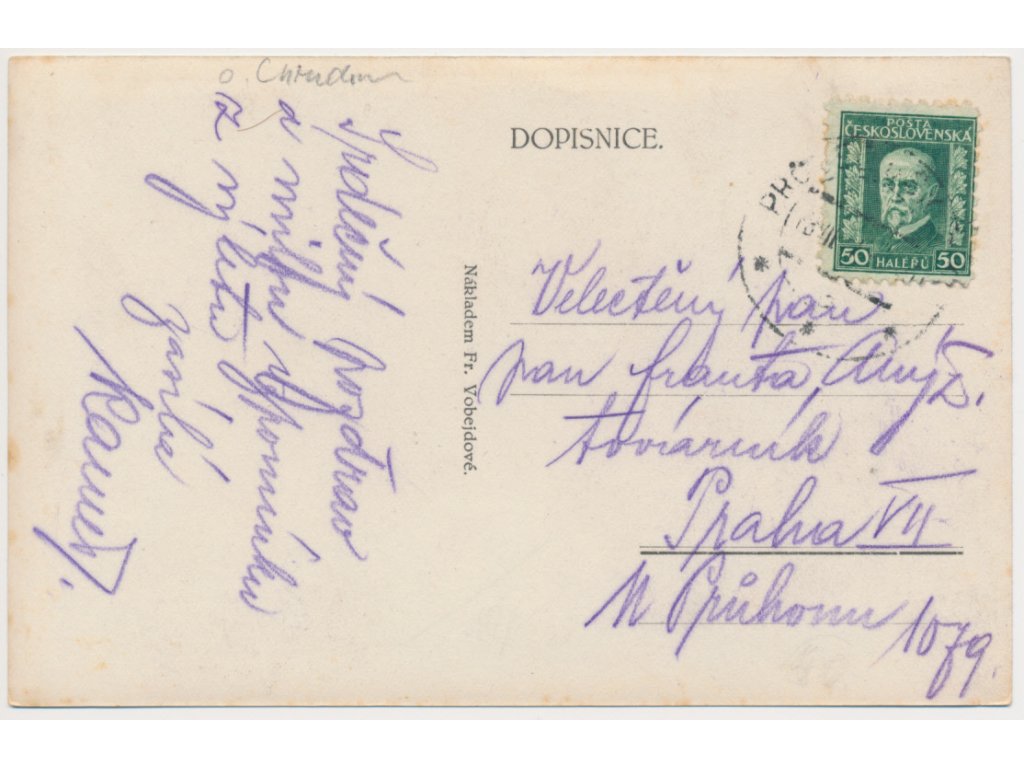 o. Chrudim
Srdečný pozdrav
a milou vzpomínku
z výletu
Jarda
DOPISNICE.
Nákladem Fr. Vobejdové.
POŠTA
ČESKOSLOVENSKÁ
50 HALÉŘŮ 50
PRO
Velectěný pan
pan Franta
továrník
Praha VII
N Průhonu
1079.